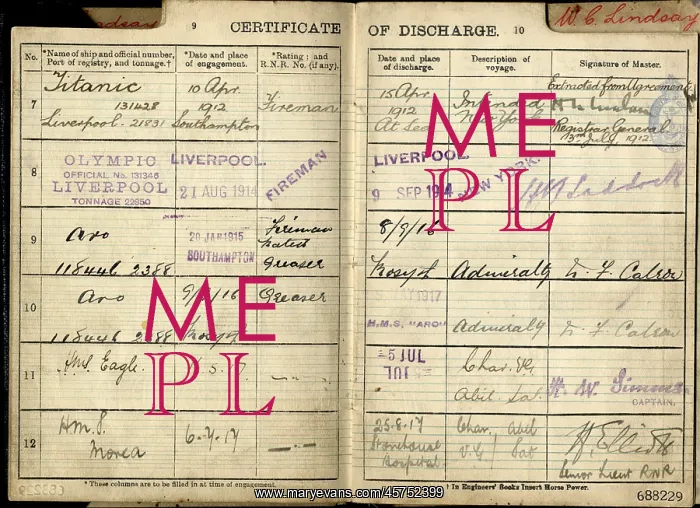 9 CERTIFICATE
*Name of ship and official number,
Port of registry, and tonnage.†
*Date and place
of engagement.
*Rating; and
R.N.R. No. (if any).
No.
7
Titanic
131428
Liverpool - 21831
10 Apr.
1912
Southampton
Fireman
8
OLYMPIC
OFFICIAL No. 131346
LIVERPOOL
TONNAGE 22350
LIVERPOOL.
21 AUG 1914
FIREMAN
9
Aro
118446 2388
20 JAN 1915
SOUTHAMPTON
Fireman
Greaser
10
Aro
118446 2388
Greaser
11
HMS. Eagle.
12
H.M.S.
Morea
6-7-17
* These columns are to be filled in at time of engagement.
OF DISCHARGE. 10
W. C. Lindsay
Date and place
of discharge.
Description of
voyage.
Signature of Master.
15 Apr.
1912
At Sea
Intended
New York
Extracted from Agreement
Registrar General
3rd July 1912
LIVERPOOL.
9 SEP 1914
NEW YORK.
8/9/16
Rosyth
Admiralty
1917
H.M.S. "ARO"
Admiralty
5 JUL
Char. VG.
Abil. Sat.
CAPTAIN.
25-8-17
Hospital
Char. Abil
V.G / Sat
Senior Lieut RNR
† In Engineers' Books Insert Horse Power.
688229
ME
PL
ME
PL
www.maryevans.com/45752399